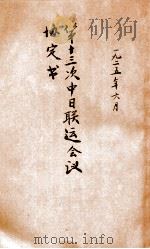 一九二五年六月
第十三次中日联运会议
协定书
www.mtoou.info